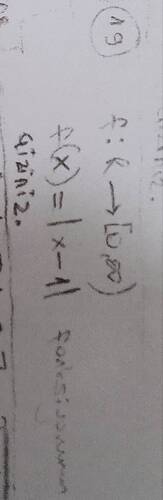 19
f: R → [0,∞)
f(x) = |x-1| fonksiyonunu
çiziniz.